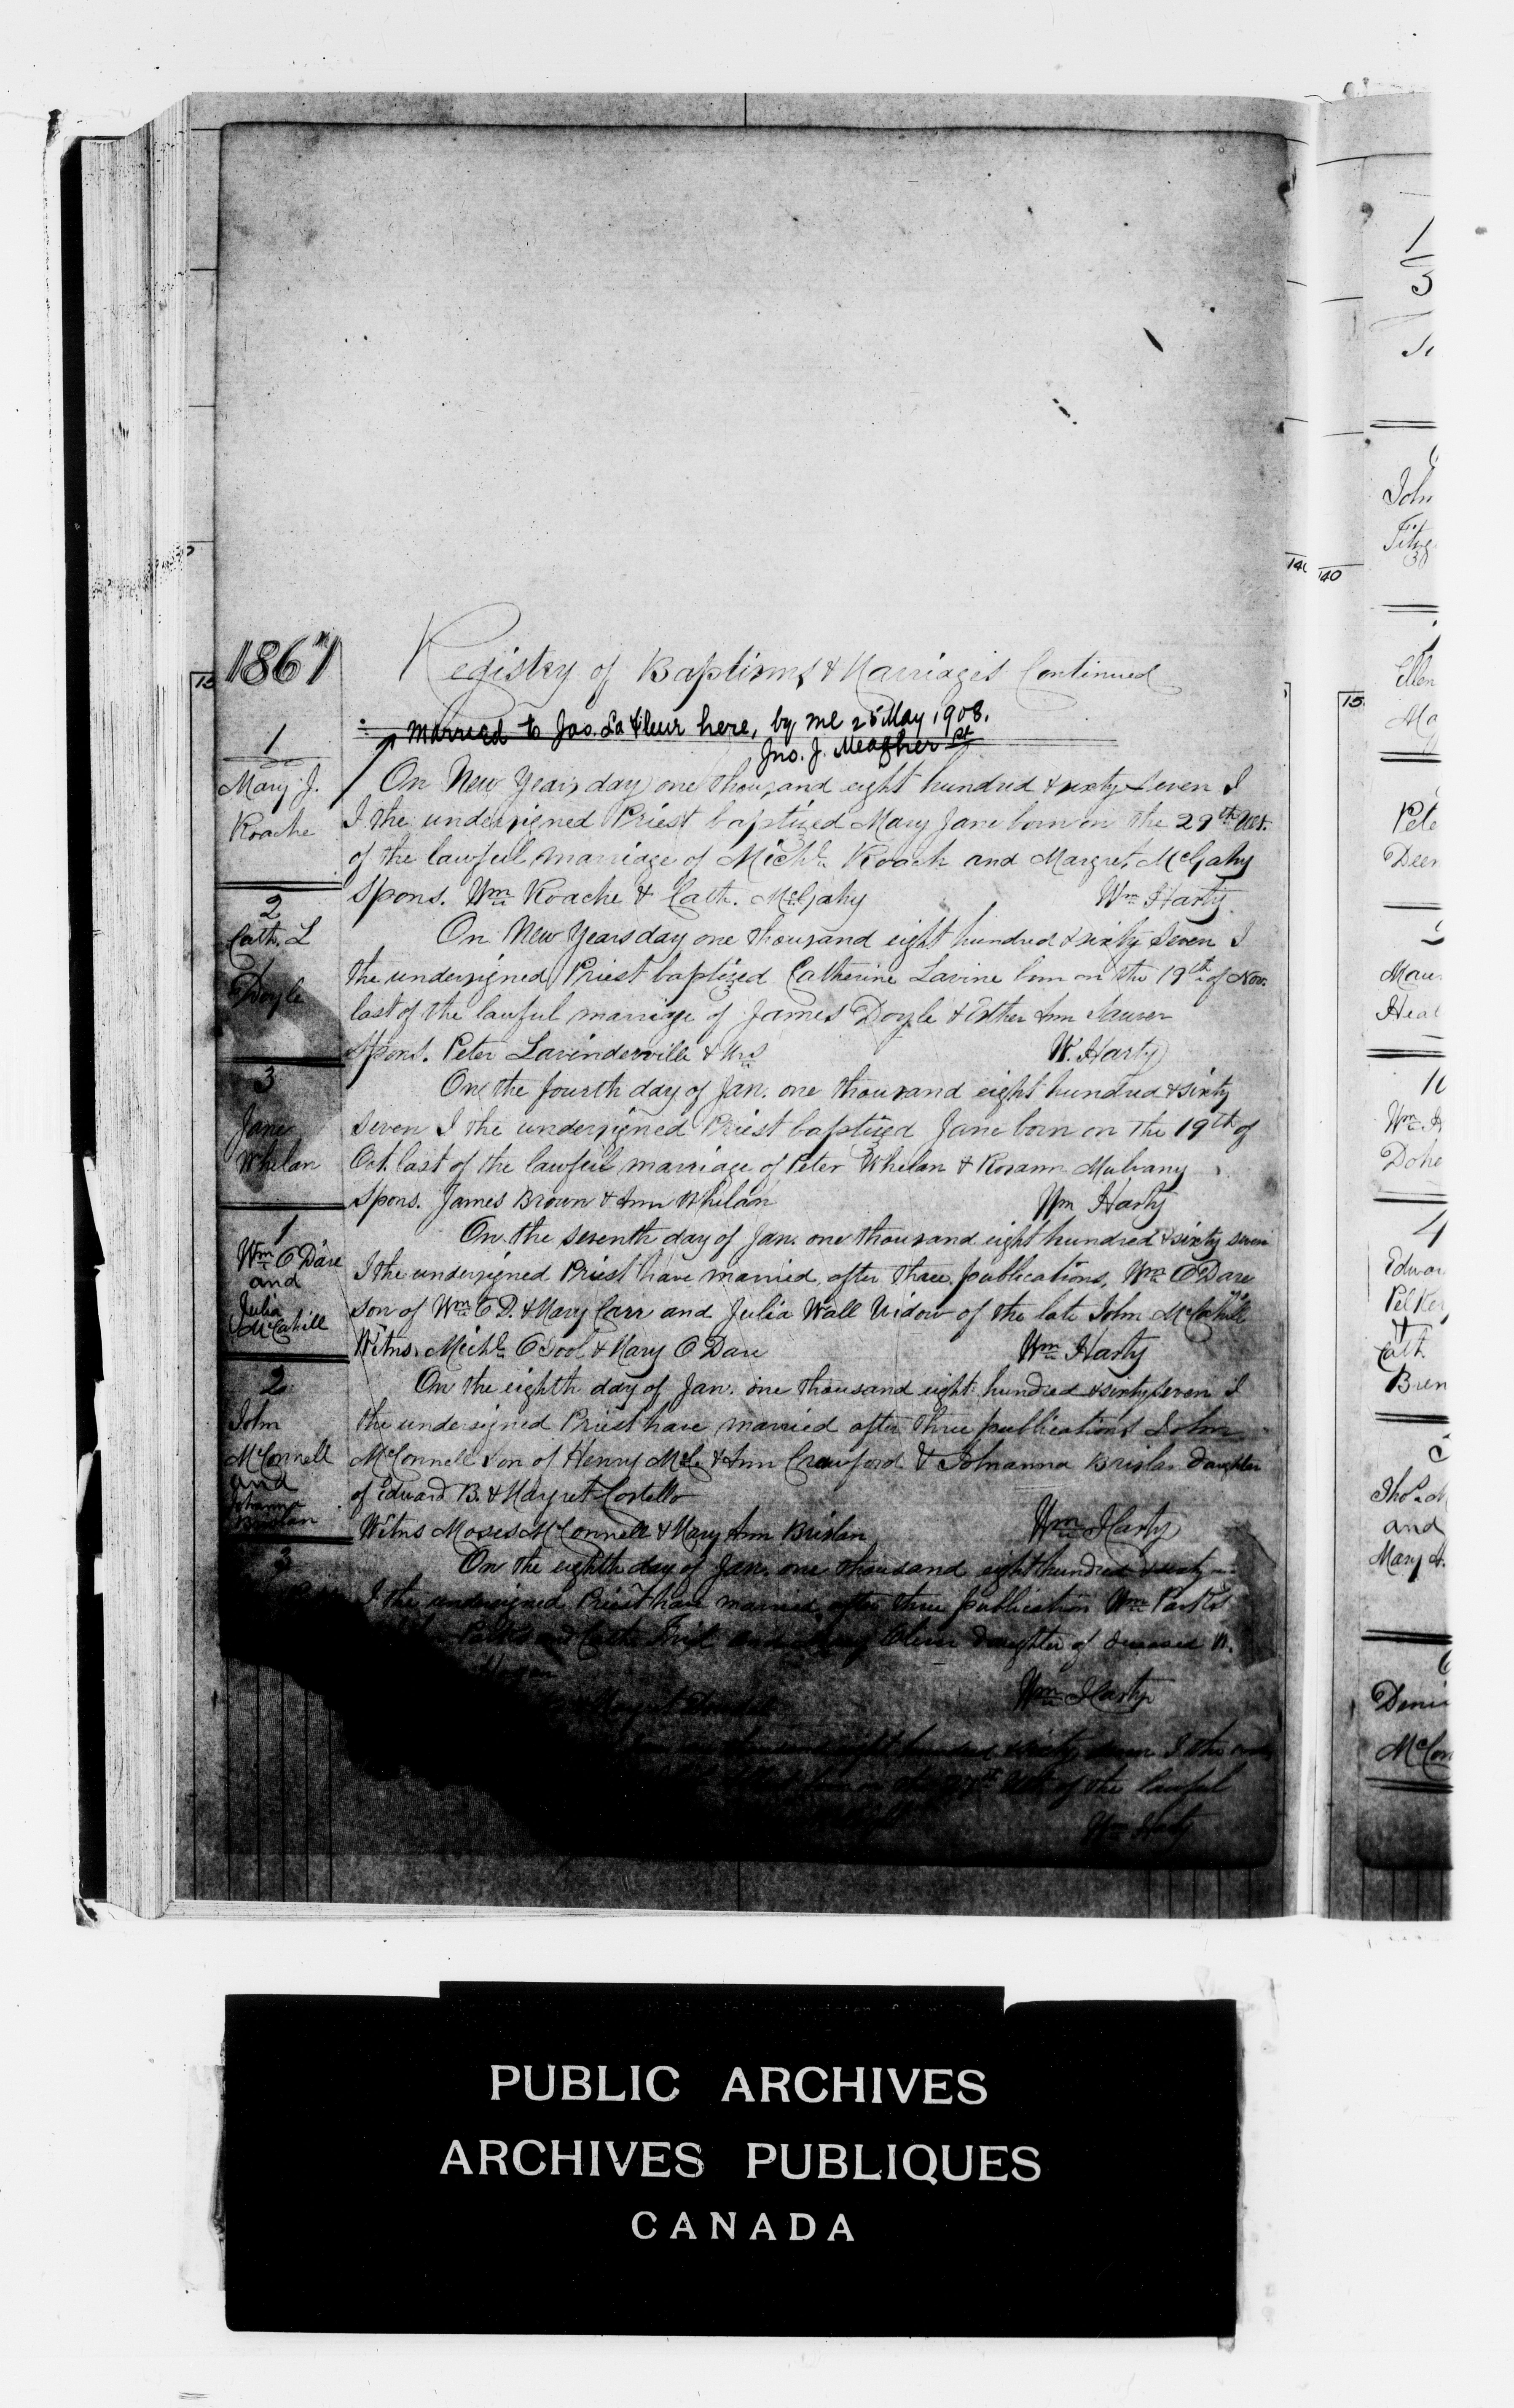 1867
Registry of Baptisms & Marriages Continued
married to Jos. Lafleur here, by me 25 May, 1908.
Jno. J. Meagher Pt
1
Mary J.
Roache
On New Years day one thousand eight hundred & sixty seven I
I the undersigned Priest baptized Mary Jane born on the 29th Ult.
of the lawful marriage of Michl. Roach and Margret McGahy
Spons. Wm Roache & Cath. McGahy Wm Harty
2
Cath. L
Doyle
On New Years day one thousand eight hundred & sixty seven I
the undersigned Priest baptized Catherine Lavine born on the 19th of Nov.
last of the lawful marriage of James Doyle & Esther Ann
Spons. Peter Lavinderville & Mrs W. Harty
3
Jane
Whelan
On the fourth day of Jan. one thousand eight hundred & sixty
seven I the undersigned Priest baptized Jane born on the 19th of
Oct. last of the lawful marriage of Peter Whelan & Rosann Mulvany
Spons. James Brown & Ann Whelan Wm Harty
1
Wm O'Dare
and
Julia
McCahill
On the seventh day of Jan. one thousand eight hundred & sixty seven
I the undersigned Priest have married, after three publications, Wm O'Dare
son of Wm O'D. & Mary Carr and Julia Wall Widow of the late John McCahill
Witns. Michl. O'Tool & Mary O'Dare Wm Harty
2
John
McConnell
and
Johanna
Brislan
On the eighth day of Jan. one thousand eight hundred & sixty seven I
the undersigned Priest have married after three publications John
McConnell son of Henry McC. & Ann Crawford & Johanna Brislan daughter
of Edward B. & Margret Costello
Witns Moses McConnell & Mary Ann Brislan Wm Harty
3
On the eighth day of Jan. one thousand eight hundred & sixty
I the undersigned Priest have married after three publication Wm
and daughter of deceased
Wm Harty
eight hundred & sixty seven I the
born on the Ult. of the lawful
Wm Harty
140
140
15
1
3
John
Ellen
10
4
and
PUBLIC ARCHIVES
ARCHIVES PUBLIQUES
CANADA